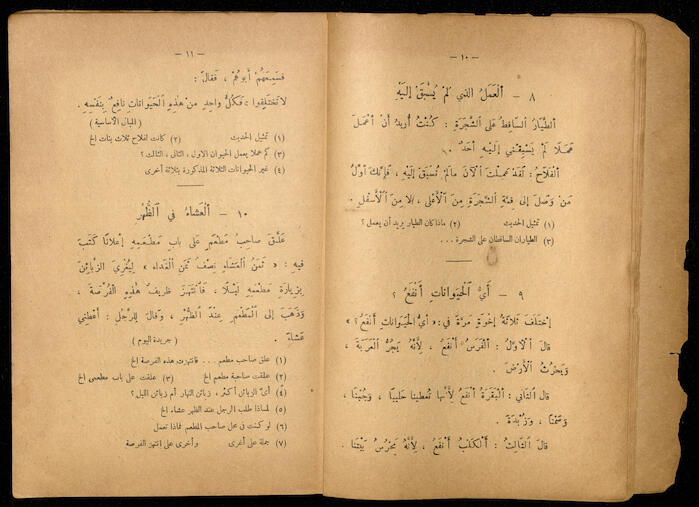 — ١٠ —
٨ — اَلْعَمَلُ الذي لمْ يُسْبَقْ إِلَيْهِ
الطَّيّارُ السّاقِطُ عَلى الشَّجَرَةِ : كُنْتُ أُرِيدُ أَنْ أَعْمَلَ
عَمَلًا لَمْ يَسْبِقْنِي إِلَيْهِ أَحَدٌ .
الْفَلّاحُ : لَقَدْ عَمِلْتَ الْآنَ مَالَمْ تُسْبَقْ إِلَيْهِ ، فَإِنَّكَ أَوَّلُ
مَنْ وَصَلَ إِلى قِمَّةِ الشَّجَرَةِ مِنَ الْأَعْلى ، لا مِنَ الْأَسْفَلِ .
(١) تمثيل الحديث (٢) ماذا كان الطيار يريد أن يعمل ؟
(٣) الطياران الساقطان على الشجرة ...
٩ — أَيُّ الْحَيَواناتِ أَنْفَعُ ؟
إِخْتَلَفَ ثَلاثَةُ إِخْوَةٍ مَرَّةً في : « أَيُّ الْحَيَواناتِ أَنْفَعُ ؟ »
قالَ الْأَوَّلُ : اَلْفَرَسُ أَنْفَعُ ، لِأَنَّهُ يَجُرُّ الْعَرَبَةَ ،
وَيَحْرُثُ الْأَرْضَ .
قالَ الثّاني : اَلْبَقَرَةُ أَنْفَعُ لِأَنَّها تُعْطينا حَليبًا ، وَجُبْنًا ،
وَسَمْنًا ، وَزُبْدَةً .
قالَ الثّالِثُ : اَلْكَلْبُ أَنْفَعُ ، لِأَنَّهُ يَحْرُسُ بَيْتَنا .
— ١١ —
فَسَمِعَهُمْ أَبُوهُمْ ، فَقالَ :
لا تَخْتَلِفُوا ، فَكُلُّ واحِدٍ مِنْ هٰذِهِ الْحَيَواناتِ نافِعٌ بِنَفْسِهِ .
( المبانى الأساسية )
(١) تمثيل الحديث (٢) كانت لفلاح ثلاث بنات الخ
(٣) كم عملا يعمل الحيوان الاول ، الثانى ، الثالث ؟
(٤) غير الحيوانات الثلاثة المذكورة بثلاثة أخرى
١٠ — اَلْعَشاءُ في الظُّهْرِ
عَلَّقَ صاحِبُ مَطْعَمٍ عَلى بابِ مَطْعَمِهِ إِعْلانًا كَتَبَ
فيهِ : « ثَمَنُ الْعَشاءِ نِصْفُ ثَمَنِ الْغَداءِ » لِيُغْرِيَ الزَّبائِنَ
بِزِيارَةِ مَطْعَمِهِ لَيْلًا ، فَانْتَهَزَ ظَريفٌ هٰذِهِ الْفُرْصَةَ ،
وَذَهَبَ إِلى الْمَطْعَمِ عِنْدَ الظُّهْرِ ، وَقالَ لِلرَّجُلِ : أَعْطِني
عَشاءً . ( جريدة اليوم )
(١) علق صاحب مطعم ... فانتهزت هذه الفرصة الخ
(٢) علقت صاحبة مطعم الخ (٣) علقت على باب مطعمى الخ
(٤) أى الزبائن أكثر ، زبائن النهار أم زبائن الليل ؟
(٥) لماذا طلب الرجل عند الظهر عشاء الخ
(٦) لو كنت فى محل صاحب المطعم فماذا تعمل
(٧) جملة على أغرى وأخرى على انتهز الفرصة